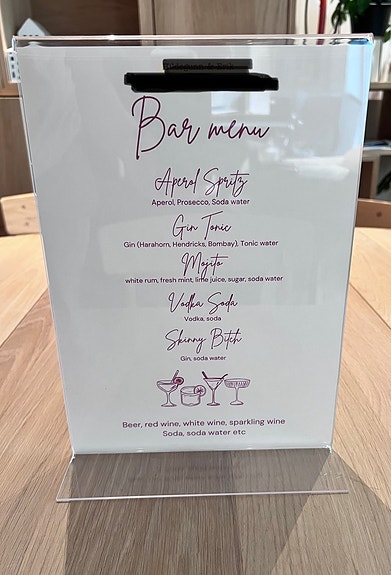 Bar menu
Aperol Spritz
Aperol, Prosecco, Soda water
Gin Tonic
Gin (Harahorn, Hendricks, Bombay), Tonic water
Mojito
white rum, fresh mint, lime juice, sugar, soda water
Vodka Soda
Vodka, soda
Skinny Bitch
Gin, soda water
Beer, red wine, white wine, sparkling wine
Soda, soda water etc